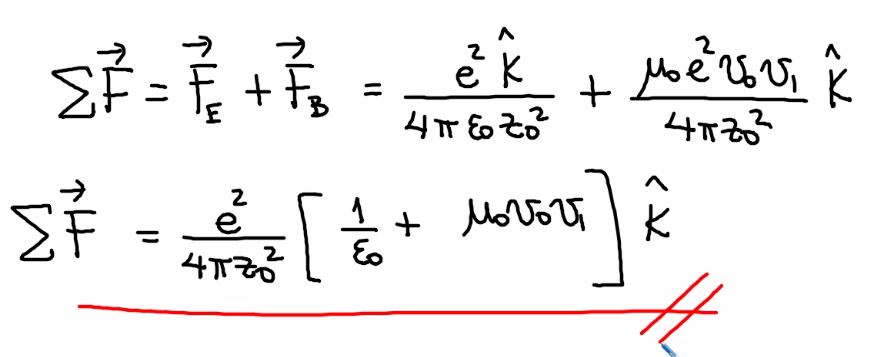 $\sum \vec{F} = \vec{F}_E + \vec{F}_B = \frac{e^2 \hat{k}}{4\pi\varepsilon_0 z_0^2} + \frac{\mu_0 e^2 v_0 v_1}{4\pi z_0^2} \hat{k}$
$\sum \vec{F} = \frac{e^2}{4\pi z_0^2} \left[ \frac{1}{\varepsilon_0} + \mu_0 v_0 v_1 \right] \hat{k}$